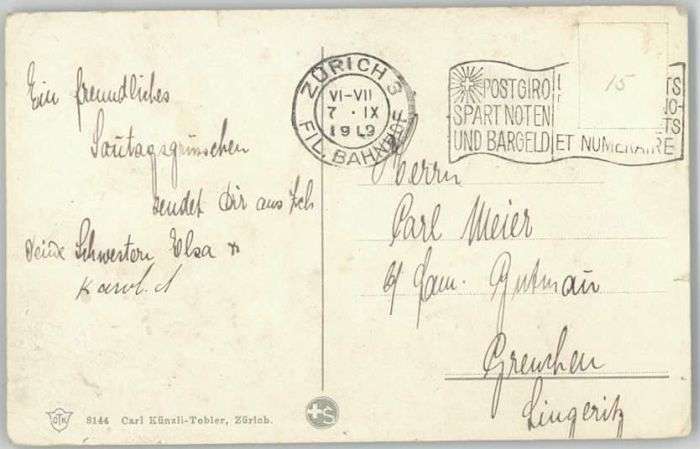 Ein freundliches
Sontagsgrüsschen
sendet Dir aus Zch
deine Schwestern Elsa +
ZÜRICH 3
VI-VII
7. IX
FIL. BAHNHOF
POSTGIRO
SPART NOTEN
UND BARGELD
ET NUMÉRAIRE
15
Herrn
Carl Meier
b/ Fam. Gutmau
Grenchen
Lingeritz
CTK 8144 Carl Künzli-Tobler, Zürich.
S